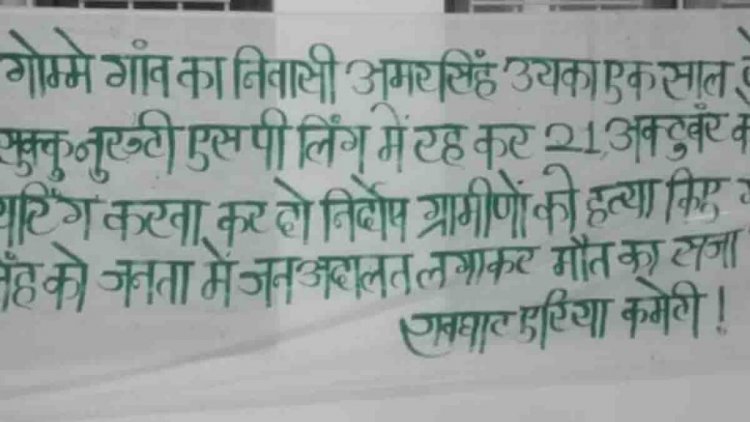 गोम्मे गांव का निवासी अमरसिंह उयका एक साल
सुक्कु नुरुटी एस पी लिंग में रह कर 21, अक्टुबंर
करवा कर दो निर्दोष ग्रामीणों की हत्या किए
को जनता में जन अदालत लगाकर मौत का सजा
रावघाट एरिया कमेटी !